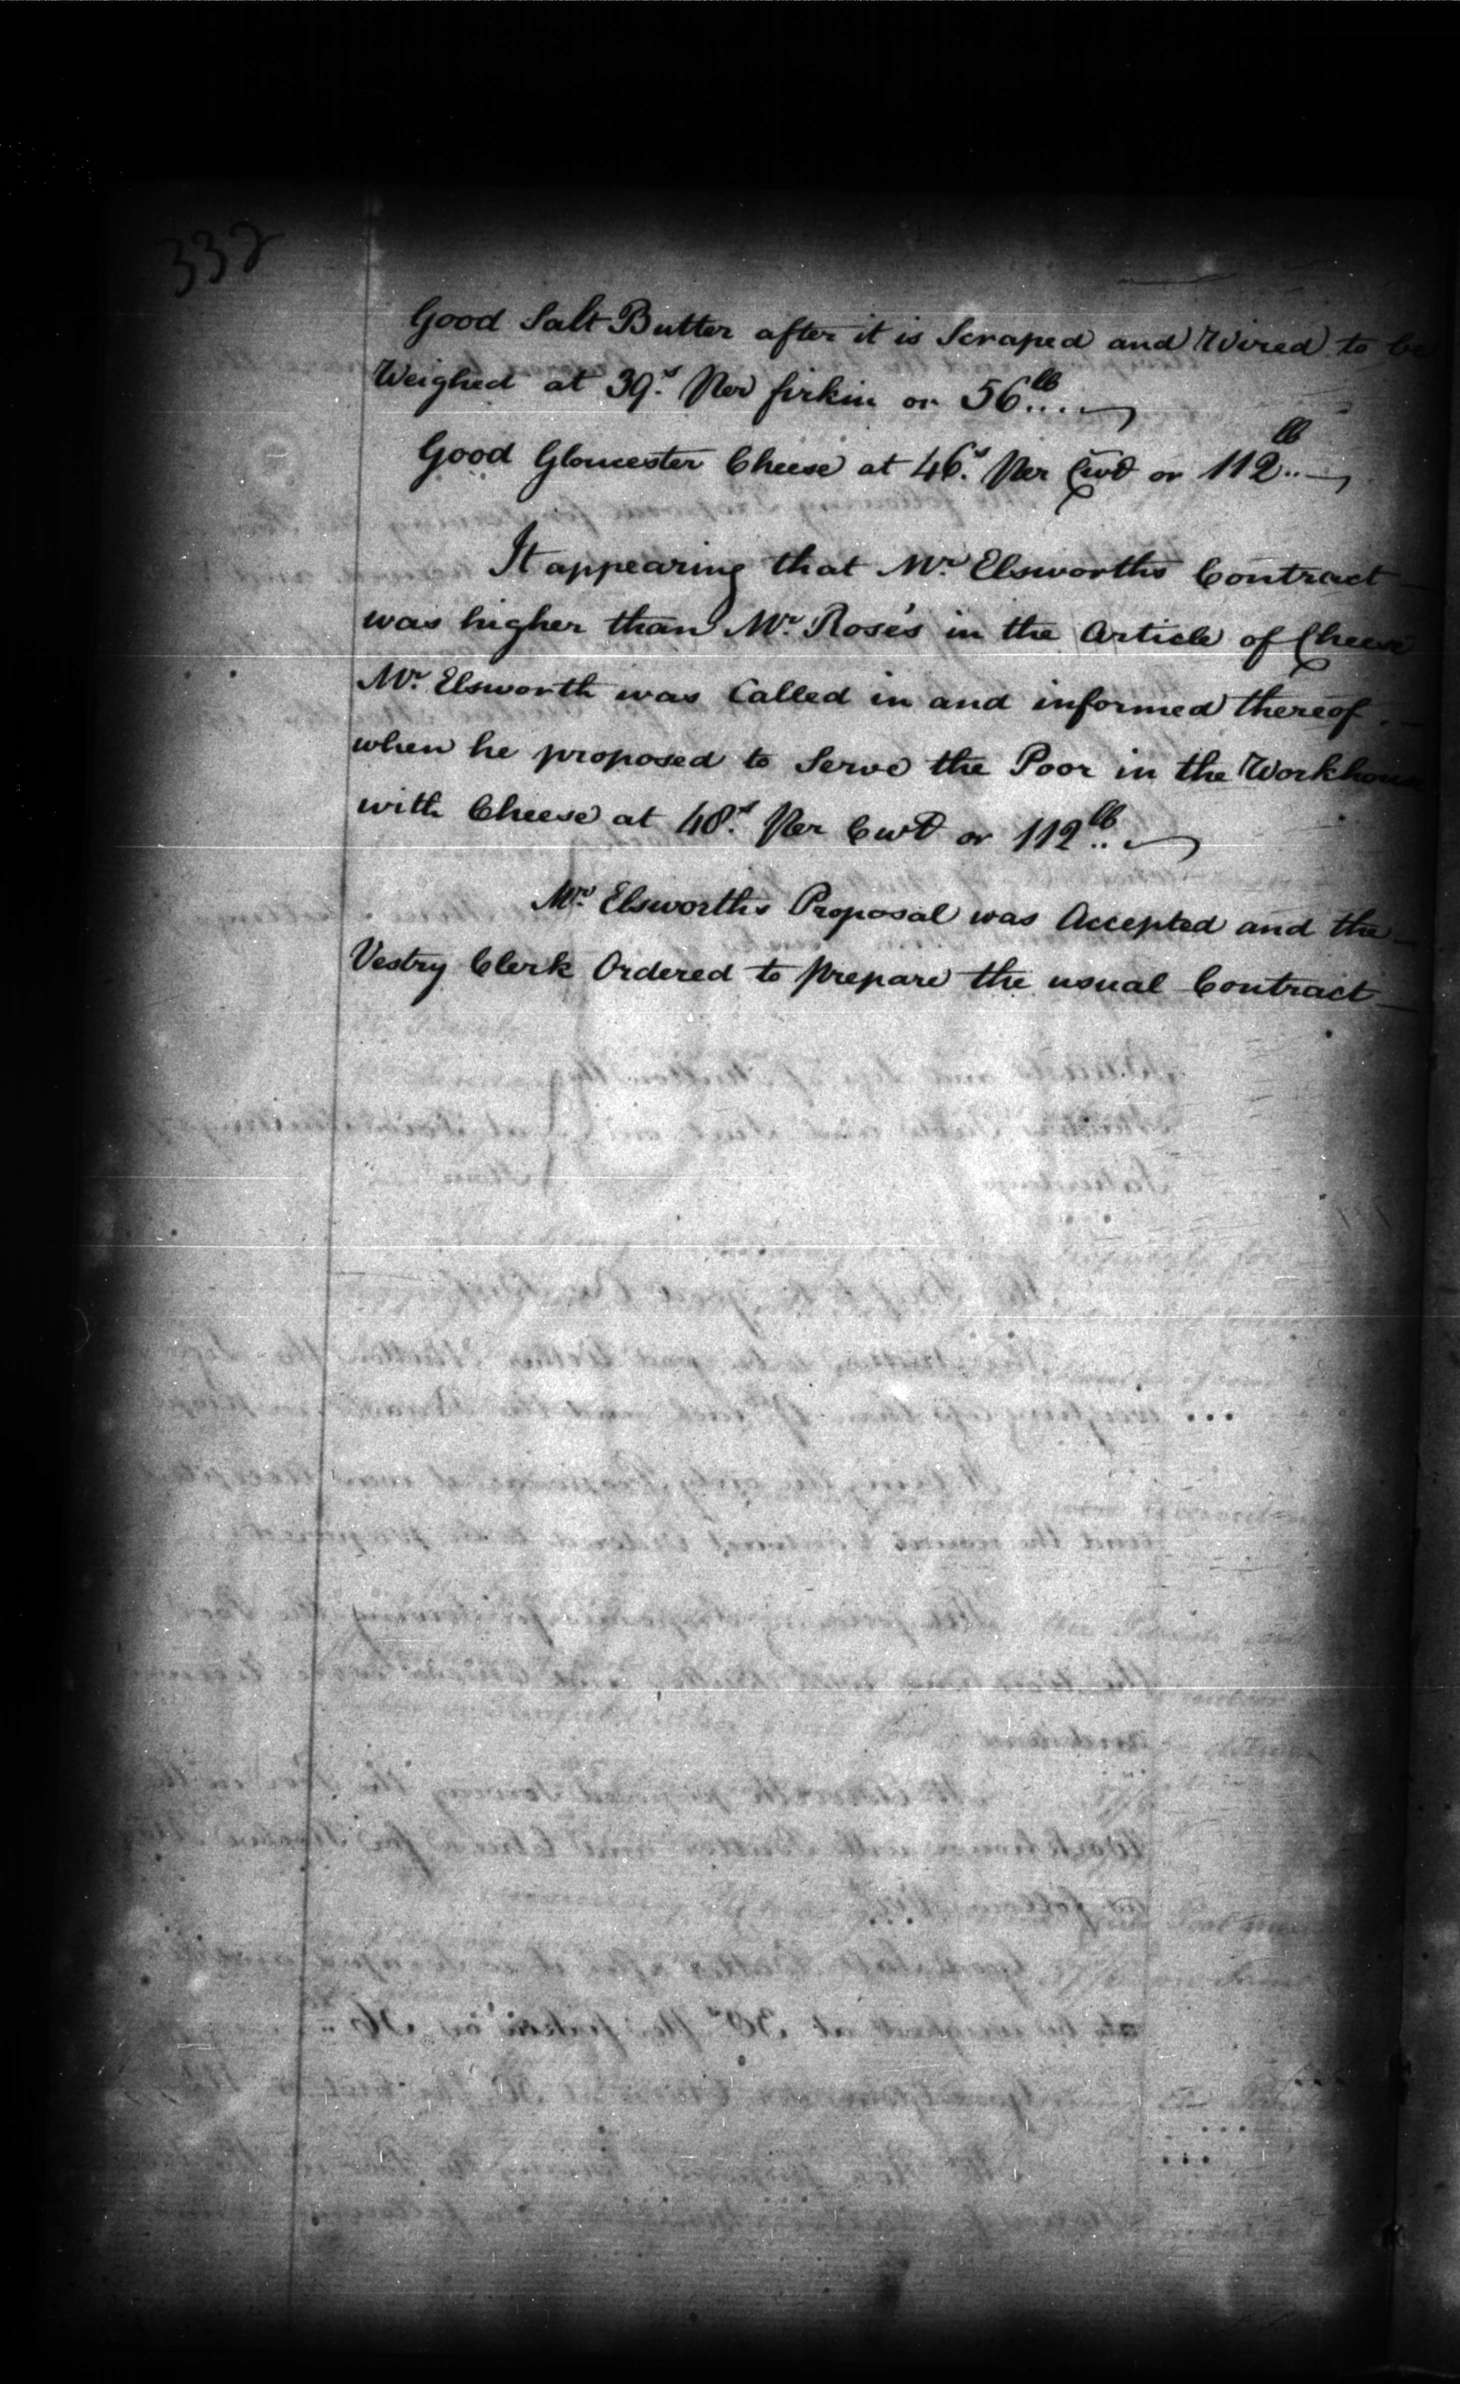 332
Good Salt Butter after it is Scraped and Wired to be
Weighed at 39.s Per firkin or 56lb
Good Gloucester Cheese at 46.s Per Cwt or 112lb
It appearing that Mr. Elsworths Contract
was higher than Mr. Rose's in the Article of Cheese
Mr. Elsworth was Called in and informed thereof
when he proposed to Serve the Poor in the Workhouse
with Cheese at 48.s Per Cwt or 112lb
Mr. Elsworths Proposal was Accepted and the
Vestry Clerk Ordered to prepare the usual Contract